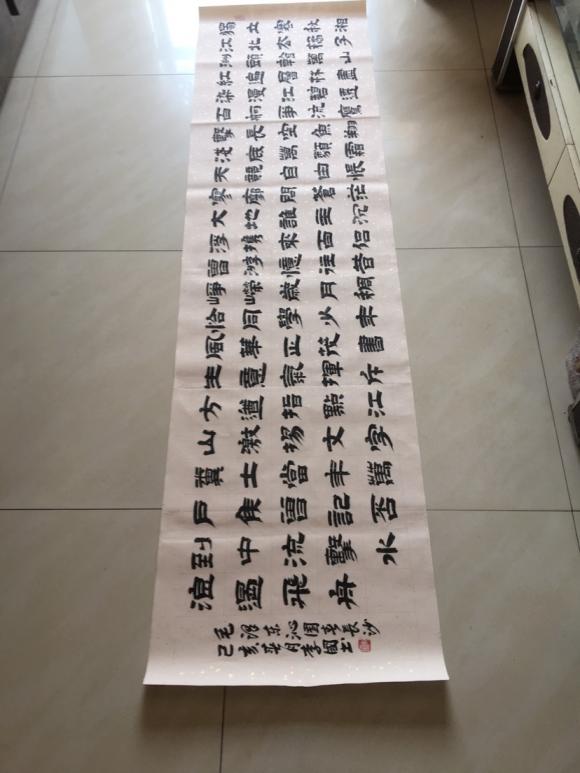 獨立寒秋湘
江北去橘子
洲頭看萬山
紅遍層林盡
染漫江碧透
百舸爭流鷹
擊長空魚翔
淺底萬類霜
天競自由悵
寥廓問蒼茫
大地誰主沉
浮攜來百侣
曾游憶往昔
崢嶸歲月稠
恰同學少年
風華正茂書
生意氣揮斥
方遒指點江
山激揚文字
糞土當年萬
户侯曾記否
到中流擊水
浪遏飛舟
毛澤东沁園春長沙
己亥月李國书